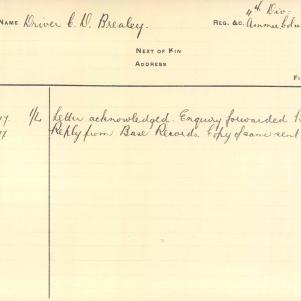 NAME Driver C. D. Brealey. REG. &C. 4th Div:
NEXT OF KIN
ADDRESS
Letter acknowledged. Enquiry forwarded
Reply from Base Records. Copy of same sent